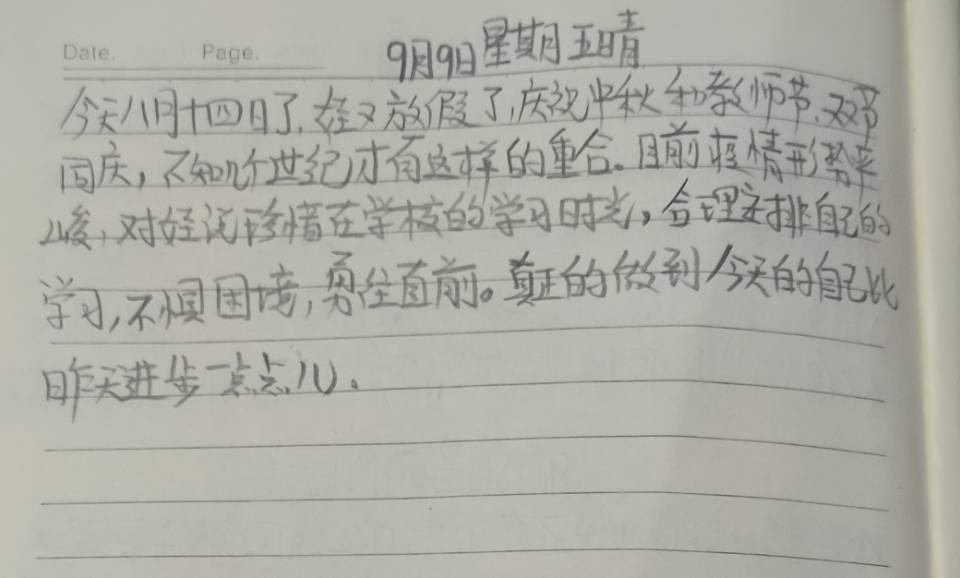 Date. Page.
9月9日星期五晴
今天八月十四日了,娃又放假了,庆祝中秋和教师节,双节
同庆,不知几个世纪才有这样的重合。目前疫情形势严
峻,对娃说珍惜在学校的学习时光,合理安排自己的
学习,不惧困境,勇往直前。真正的做到今天的自己比
昨天进步一点点儿。